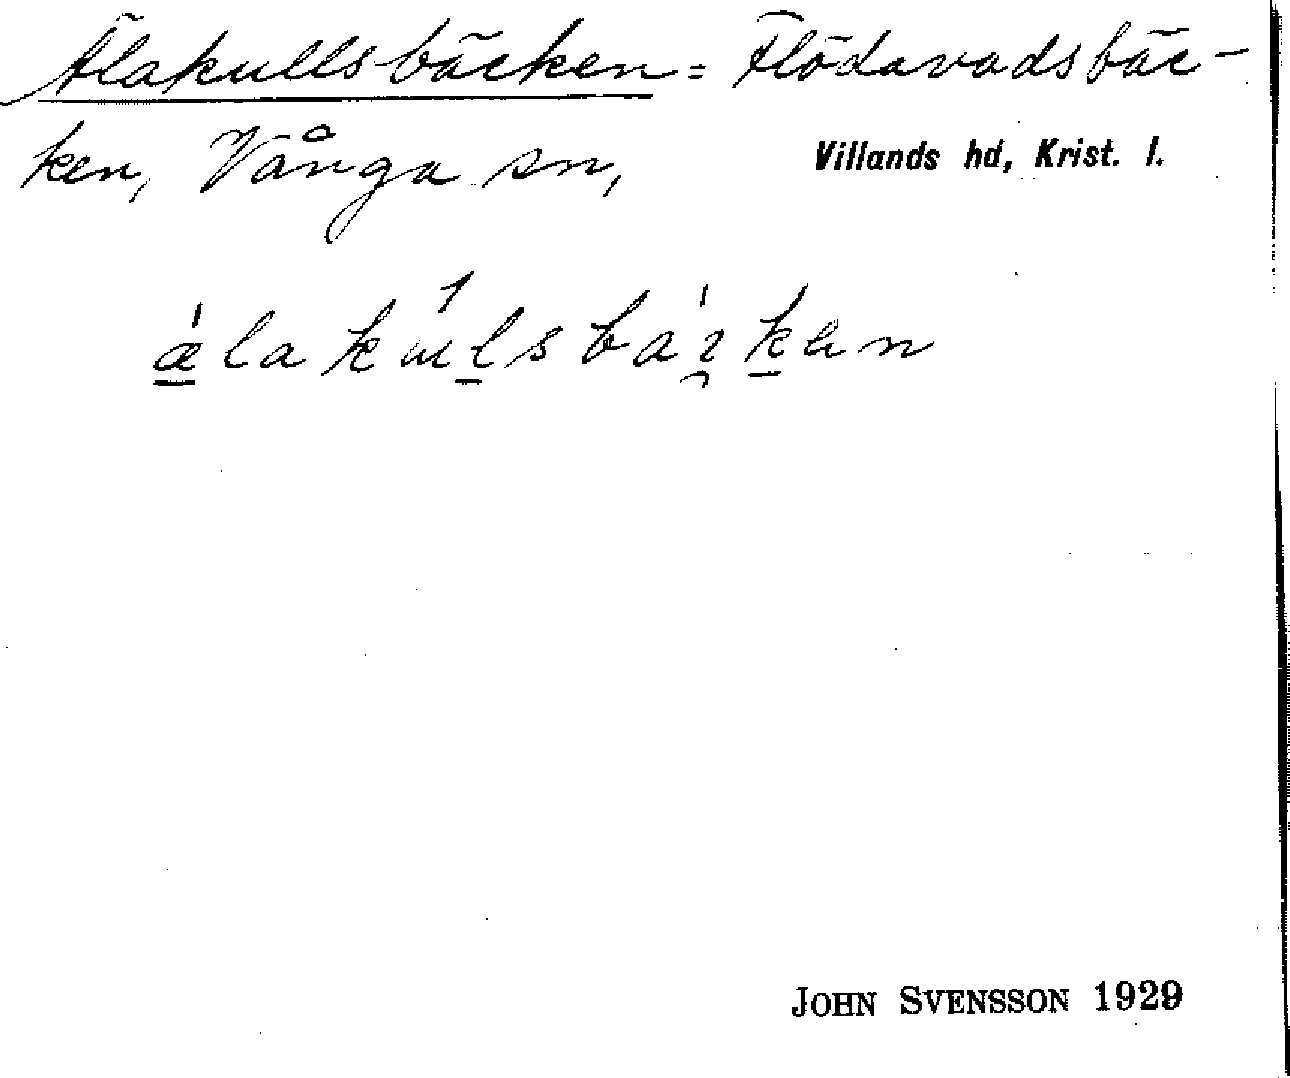 Älakullsbäcken = Flödavadsbäc-
ken, Vånga sn, Villands hd, Krist. l.
JOHN SVENSSON 1929